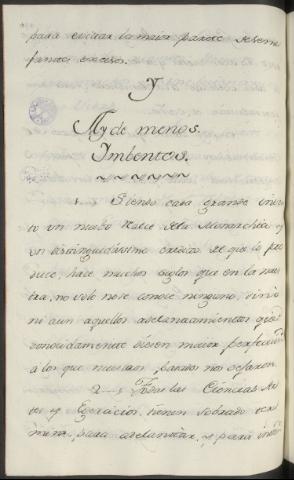 para evitar la maior parte de seme
jante exceso.
Y
Ay de menos.
Imbentos.
1. Siendo cosa grande inven
to un nuebo Realze de la Monarchia y
un distinguidissimo credito de que lo pro
duce, hace muchos siglos que en la nues
tra, no solo no se conoce ninguno, sino
ni aun aquellos adelantamientos que
conocidamente diesen maior perfeccion
á los que nuestros pasados nos dejaron.
2. Todas las Ciencias Ar
tes y Exercicios tienen sobrado ter
mino para adelantar, y para